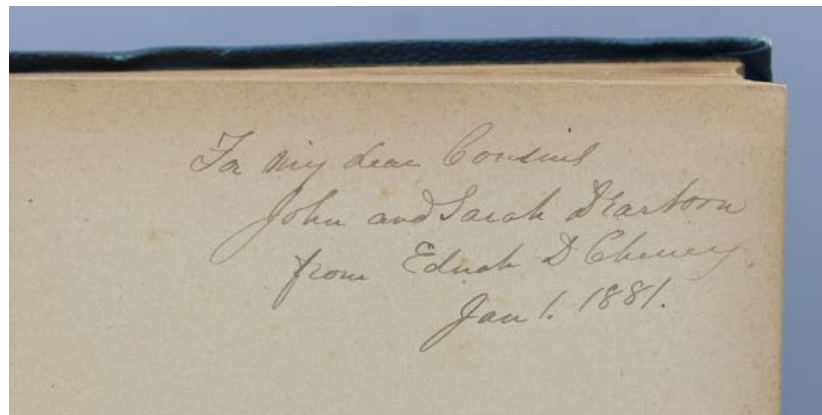 For my dear Cousins
John and Sarah Dearborn
from Ednah D Cheney.
Jan 1. 1881.